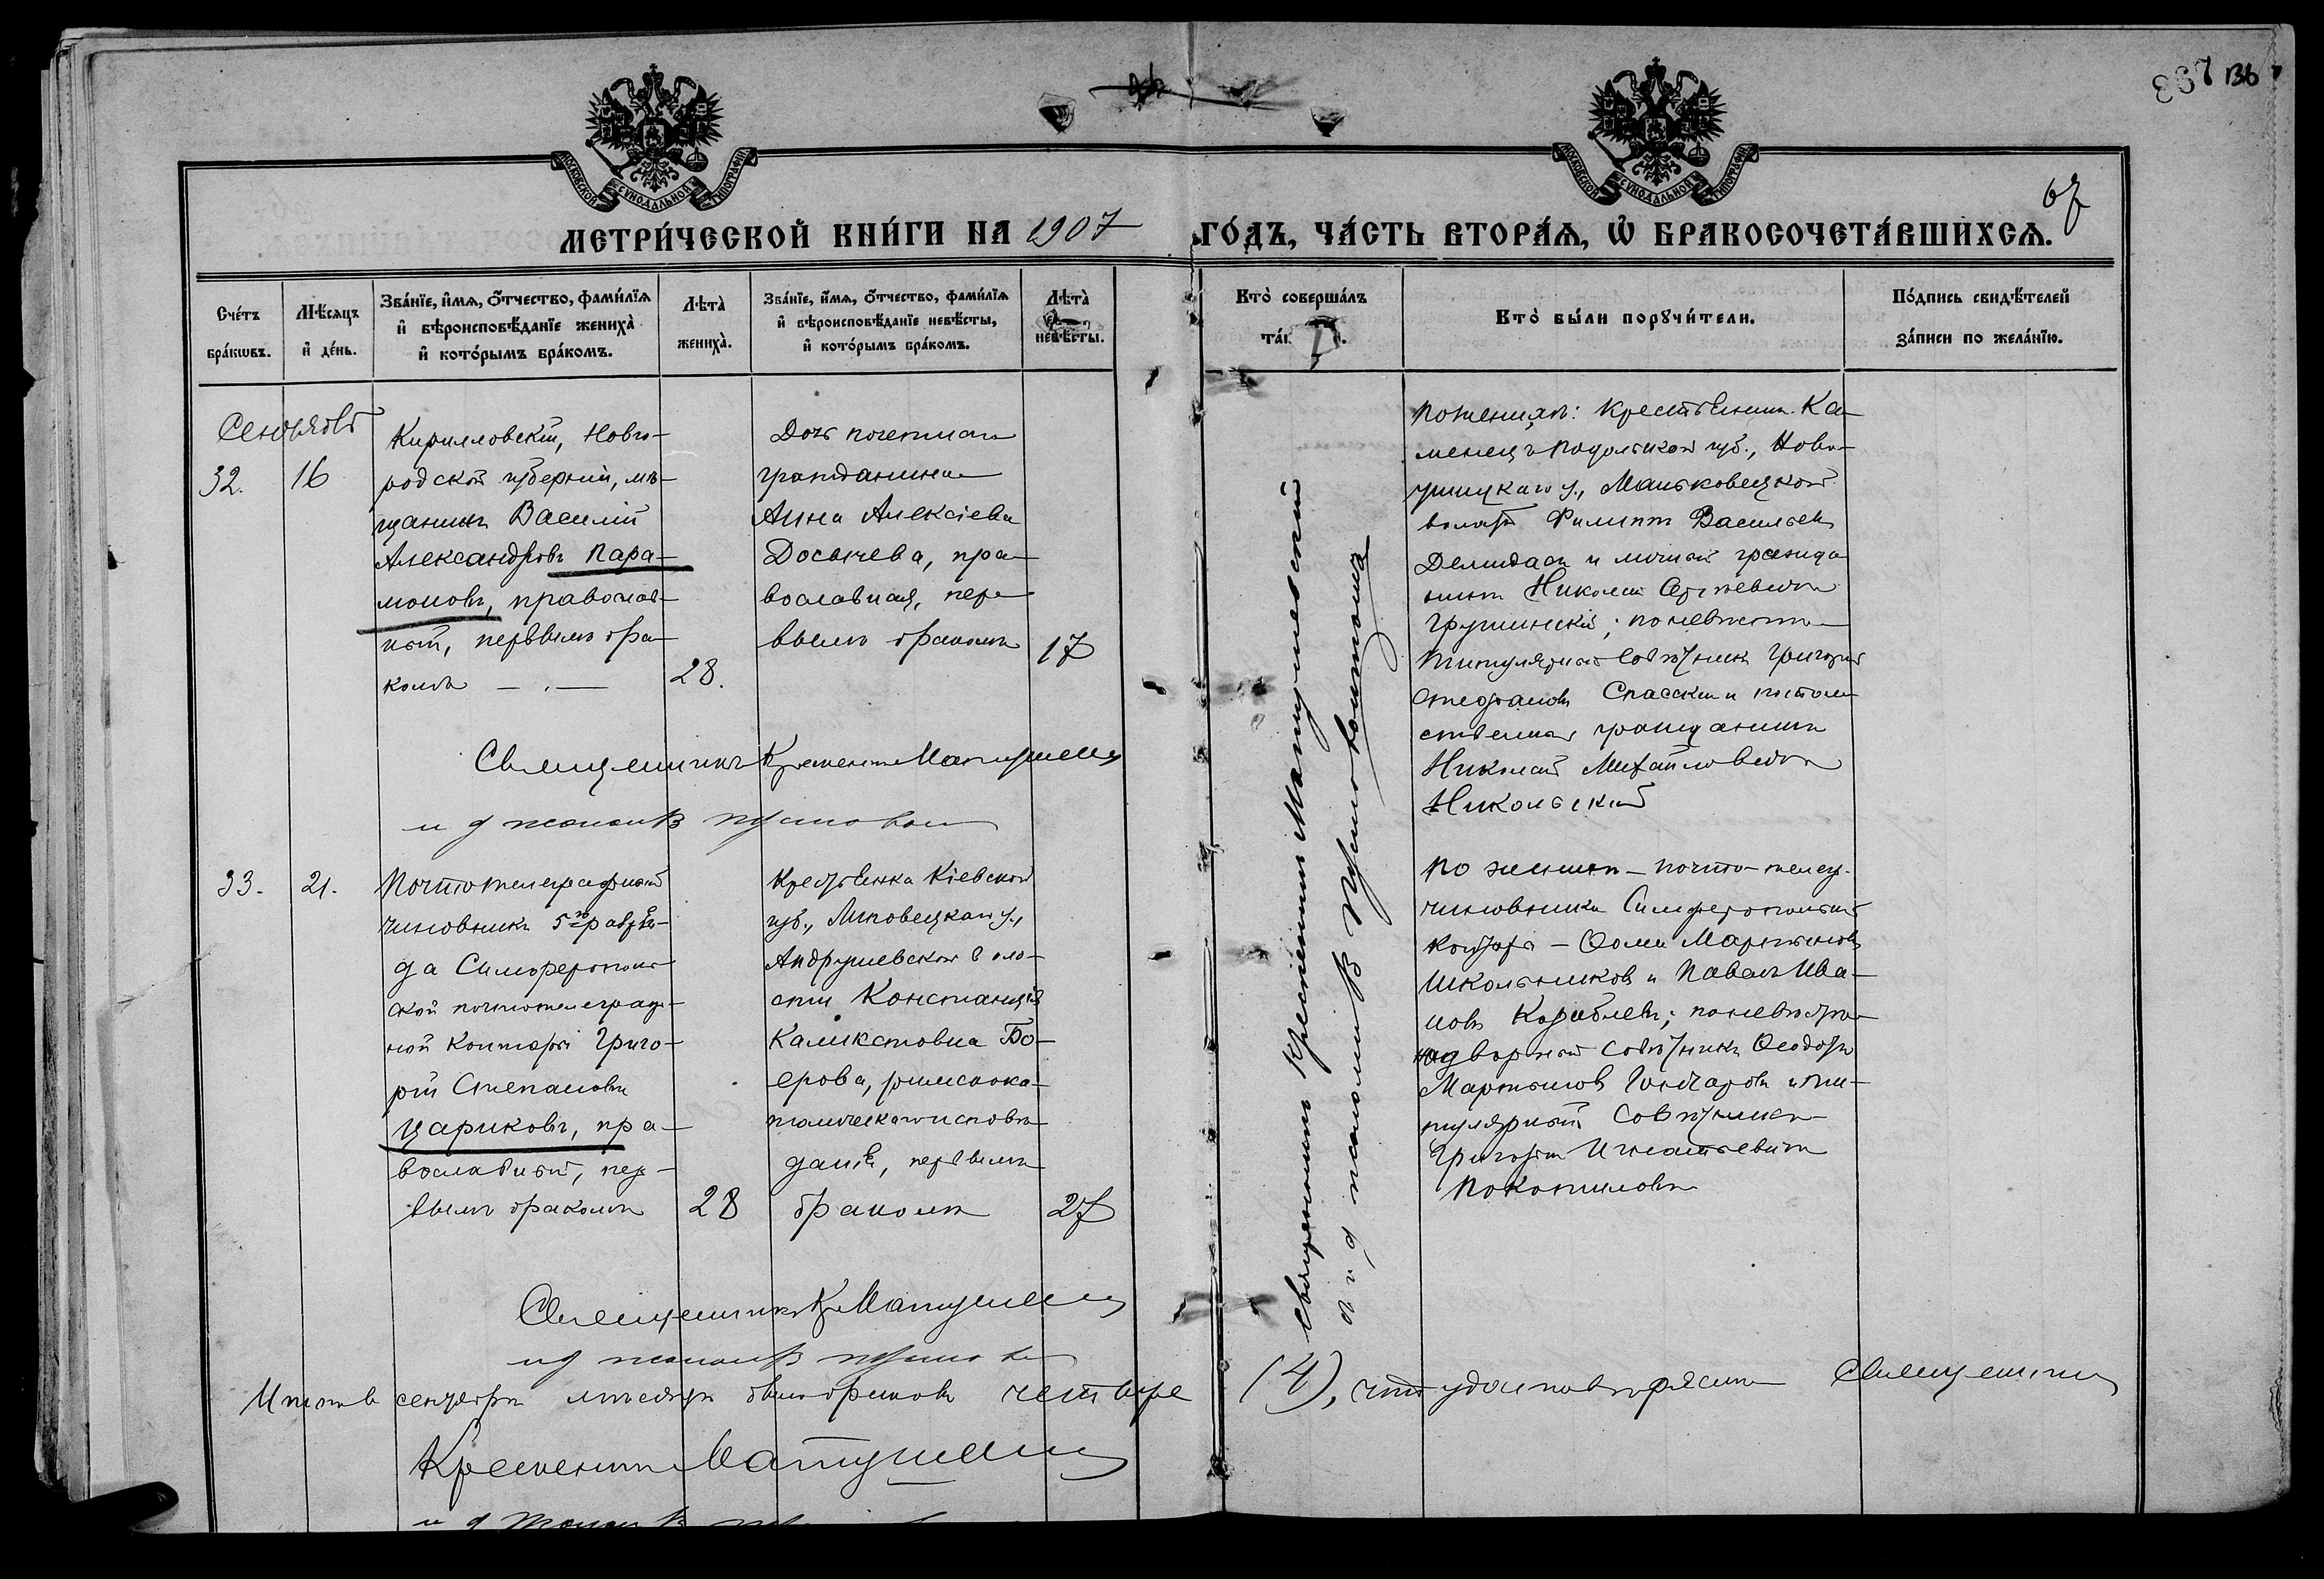 837 136
67
МОСКОВСКОЙ СѴНОДАЛЬНОЙ ТИПОГРАФІИ
МОСКОВСКОЙ СѴНОДАЛЬНОЙ ТИПОГРАФІИ
МЕТРИ́ЧЕСКОЙ КНИ́ГИ НА 1907 ГО́ДЪ, ЧА́СТЬ ВТОРА́Я, Ѽ БРАКОСОЧЕТА́ВШИХСЯ.
Сче́тъ бра́кѡвъ.
Мѣ́сяцъ и҆ де́нь.
Зва́нїе, и҆́мя, ѻ҆́тчество, фами́лїя
и҆ вѣроисповѣ́данїе жениха̀
и҆ кото́рымъ бра́комъ.
Лѣта̀ жениха̀.
Зва́нїе, и҆́мя, ѻ҆́тчество, фами́лїя
и҆ вѣроисповѣ́данїе невѣ́сты,
и҆ кото́рымъ бра́комъ.
Лѣта̀ невѣ́сты.
Кто̀ соверша́лъ
Кто̀ бы́ли порꙋчи́тели.
По́дпись свидѣ́телей
за́писи по жела́нїю.
Сентябрь
32.
16
Кирилловскій, Новго-
родской губерніи, мѣ-
щанинъ Василій
Александровъ Пара-
моновъ, православ-
ный, первымъ бра-
комъ
28.
Дочь почетнаго
гражданина
Анна Алексіева
Досычева, пра-
вославная, пер-
вымъ бракомъ
17
По женихѣ: крестьянинъ Ка-
менецъ Подольской губ., Ново-
ушицкаго у., Маньковецкой
волости Филиппъ Васильевъ
и личный гражда-
нинъ Николай Сергѣевичъ
Грушинскій; по невѣстѣ
титулярный совѣтникъ Григорій
Стефановъ Спасскій и потом-
ственный гражданинъ
Николай Михайловичъ
Никольскій
Священникъ Крискентъ Матушевскій
и д псаломщ В
33.
21.
Почтотелеграфный
чиновникъ 5го разря-
да Симферополь-
ской почтотелеграф-
ной конторы Григо-
рій Степановъ
Цариковъ, пра-
вославный, пер-
вымъ бракомъ
28
Крестьянка Кіевской
губ., Липовецкаго у.,
Андрушевской воло-
сти Констанція
Каликстовна Бо-
ерова, римскока-
толическаго исповѣ-
данія, первымъ
бракомъ
27
По женихѣ – почто-телегр.
чиновники Симферопольской
конторы – Ѳома Мартыновъ
Школьниковъ и Павелъ Ива-
новъ Кораблевъ; по невѣстѣ
надворный совѣтникъ Ѳеодоръ
Мартыновъ Гончаровъ и ти-
тулярный совѣтникъ
Григорій Игнатьевичъ
Покотиловъ
Священникъ Крискентъ Матушевскій
и д псаломщ В
Священникъ К Матушевскій
и д псаломщ В
Итого въ сентябрѣ мѣсяцѣ было браковъ четыре (4), что удостовѣряемъ Священникъ
Крискентъ Матушевскій
и д псаломщ В